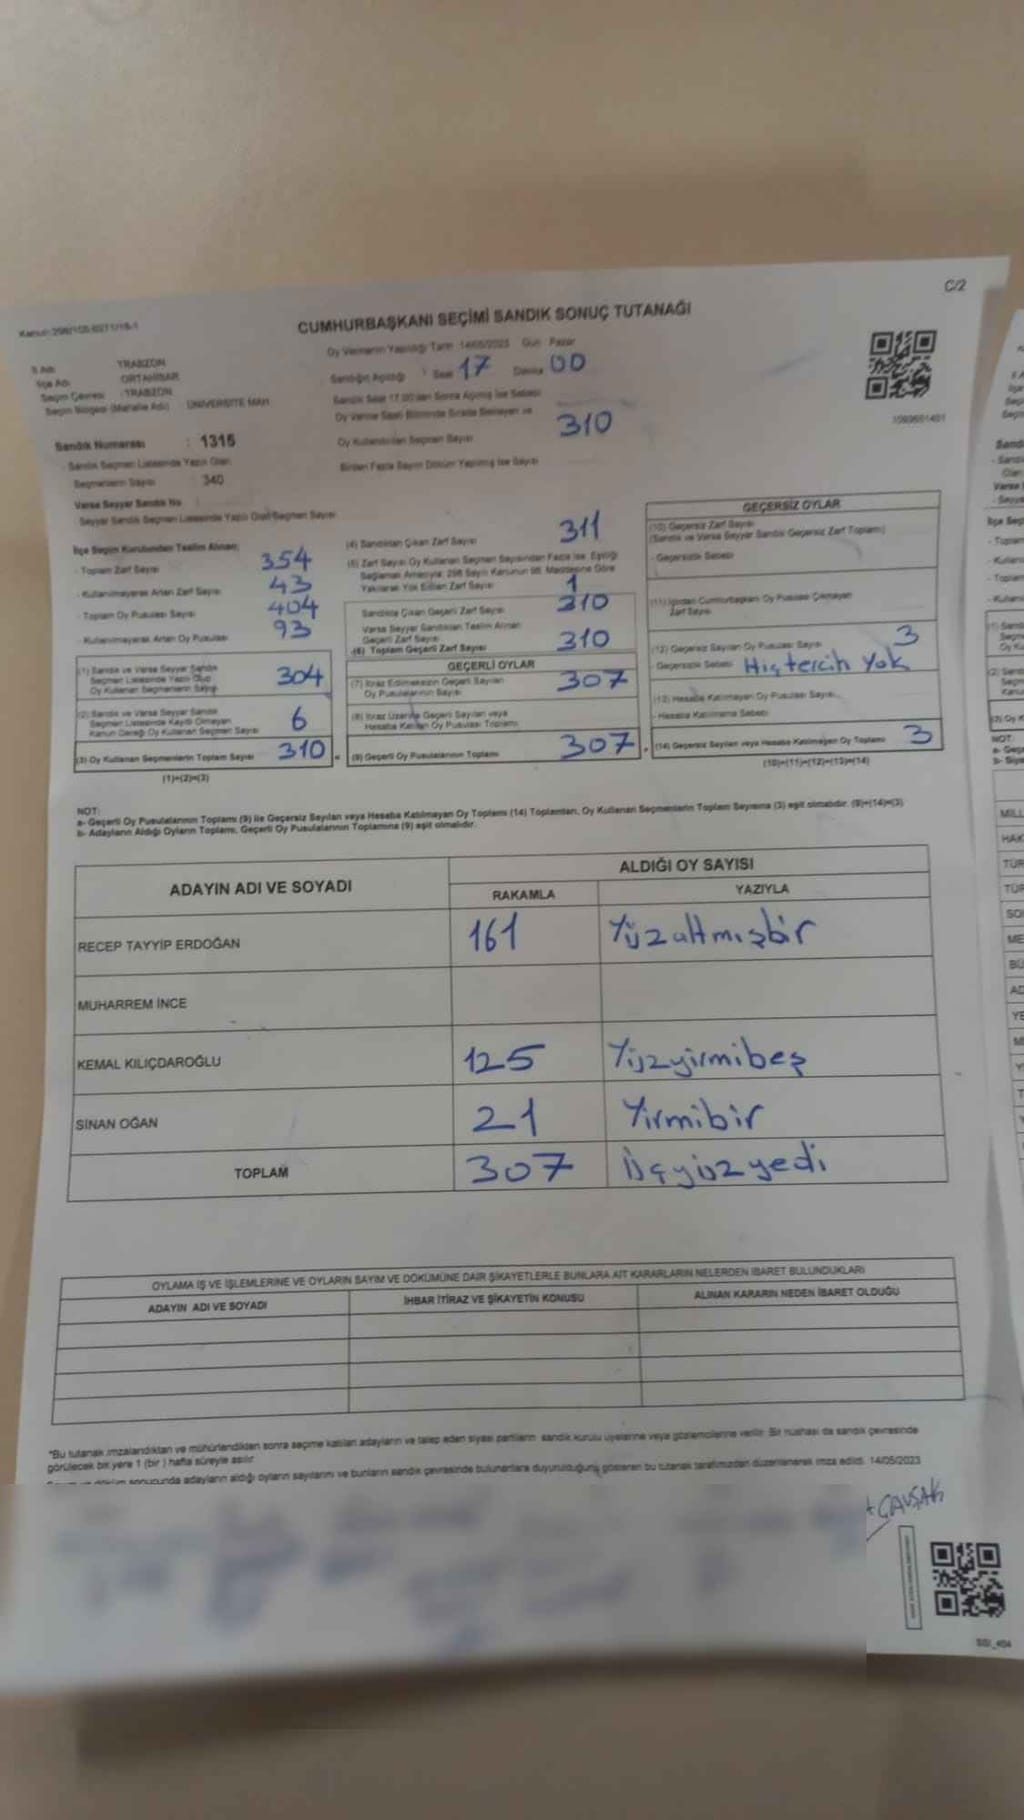 C/2
CUMHURBAŞKANI SEÇİMİ SANDIK SONUÇ TUTANAĞI
İl Adı TRABZON
İlçe Adı ORTAHİSAR
Seçim Çevresi : TRABZON
Seçim Bölgesi (Mahalle Adı) ÜNİVERSİTE MAH.
Oy Vermenin Yapıldığı Tarih 14/05/2023 Gün Pazar
Sandığın Açıldığı Saat 17 Dakika 00
Sandık Saat 17.00'dan Sonra Açılmış İse Sebebi
Oy Verme Saati Bitiminde Sırada Bekleyen ve
Oy Kullandırılan Seçmen Sayısı 310
Birden Fazla Sayım Döküm Yapılmış İse Sayısı
Sandık Numarası : 1315
- Sandık Seçmen Listesinde Yazılı Olan
Seçmenlerin Sayısı 340
Varsa Seyyar Sandık No
- Seyyar Sandık Seçmen Listesinde Yazılı Olan Seçmen Sayısı
İlçe Seçim Kurulundan Teslim Alınan;
- Toplam Zarf Sayısı 354
- Kullanılmayarak Artan Zarf Sayısı 43
- Toplam Oy Pusulası Sayısı 404
- Kullanılmayarak Artan Oy Pusulası 93
(1) Sandık ve Varsa Seyyar Sandık
Seçmen Listesinde Yazılı Olup
Oy Kullanan Seçmenlerin Sayısı 304
(2) Sandık ve Varsa Seyyar Sandık
Seçmen Listesinde Kayıtlı Olmayan
Kanun Gereği Oy Kullanan Seçmen Sayısı 6
(3) Oy Kullanan Seçmenlerin Toplam Sayısı 310 =
(1)+(2)=(3)
(4) Sandıktan Çıkan Zarf Sayısı 311
(5) Zarf Sayısı Oy Kullanan Seçmen Sayısından Fazla İse, Eşitliği
Sağlamak Amacıyla; 298 Sayılı Kanunun 98. Maddesine Göre
Yakılarak Yok Edilen Zarf Sayısı 1
Sandıkta Çıkan Geçerli Zarf Sayısı 310
Varsa Seyyar Sandıktan Teslim Alınan
Geçerli Zarf Sayısı
(6) Toplam Geçerli Zarf Sayısı 310
GEÇERLİ OYLAR
(7) İtiraz Edilmeksizin Geçerli Sayılan
Oy Pusulalarının Sayısı 307
(8) İtiraz Üzerine Geçerli Sayılan veya
Hesaba Katılan Oy Pusulası Toplamı
(9) Geçerli Oy Pusulalarının Toplamı 307
GEÇERSİZ OYLAR
(10) Geçersiz Zarf Sayısı
(Sandık ve Varsa Seyyar Sandık Geçersiz Zarf Toplamı)
- Geçersizlik Sebebi
(11) İçinden Cumhurbaşkanı Oy Pusulası Çıkmayan
Zarf Sayısı
(12) Geçersiz Sayılan Oy Pusulası Sayısı 3
Geçersizlik Sebebi Hiç tercih Yok
(13) Hesaba Katılmayan Oy Pusulası Sayısı
- Hesaba Katılmama Sebebi
(14) Geçersiz Sayılan veya Hesaba Katılmayan Oy Toplamı 3
(10)+(11)+(12)+(13)=(14)
NOT:
a- Geçerli Oy Pusulalarının Toplamı (9) ile Geçersiz Sayılan veya Hesaba Katılmayan Oy Toplamı (14) Toplamları, Oy Kullanan Seçmenlerin Toplam Sayısına (3) eşit olmalıdır. (9)+(14)=(3)
b- Adayların Aldığı Oyların Toplamı, Geçerli Oy Pusulalarının Toplamına (9) eşit olmalıdır.
ADAYIN ADI VE SOYADI
ALDIĞI OY SAYISI
RAKAMLA YAZIYLA
RECEP TAYYİP ERDOĞAN 161 Yüzaltmışbir
MUHARREM İNCE
KEMAL KILIÇDAROĞLU 125 Yüzyirmibeş
SİNAN OĞAN 21 Yirmibir
TOPLAM 307 Üçyüzyedi
OYLAMA İŞ VE İŞLEMLERİNE VE OYLARIN SAYIM VE DÖKÜMÜNE DAİR ŞİKAYETLERLE BUNLARA AİT KARARLARIN NELERDEN İBARET BULUNDUKLARI
ADAYIN ADI VE SOYADI İHBAR İTİRAZ VE ŞİKAYETİN KONUSU ALINAN KARARIN NEDEN İBARET OLDUĞU
*Bu tutanak imzalandıktan ve mühürlendikten sonra seçime katılan adayların ve talep eden siyasi partilerin sandık kurulu üyelerine veya gözlemcilerine verilir. Bir nüshası da sandık çevresinde
görülecek bir yere 1 (bir) hafta süreyle asılır.
döküm sonucunda adayların aldığı oyların sayılarını ve bunların sandık çevresinde bulunanlara duyurulduğunu gösteren bu tutanak tarafımızdan düzenlenerek imza edildi. 14/05/2023
ÇAVŞAK